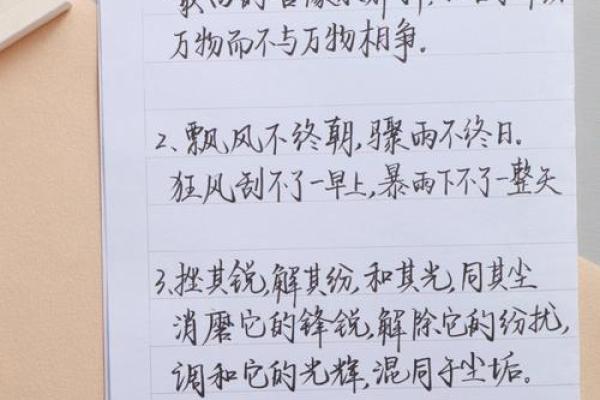 万物而不与万物相争。
2、飘风不终朝,骤雨不终日。
狂风刮不了一早上,暴雨下不了一整天
3、挫其锐,解其纷,和其光,同其尘
消磨它的锋锐,解除它的纷扰,
调和它的光辉,混同于尘垢。